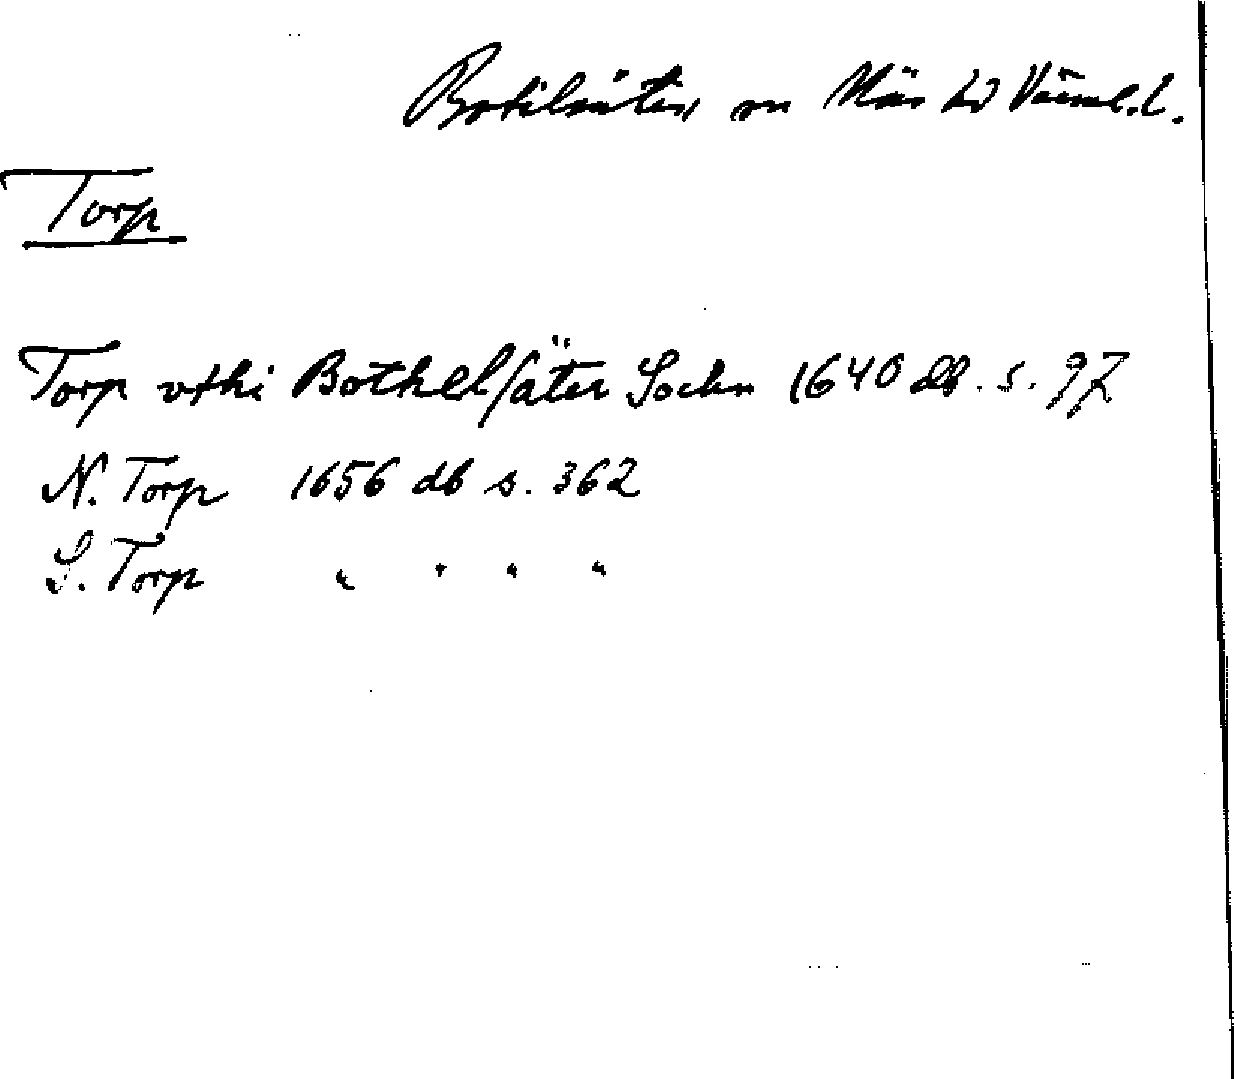 Botilsäter sn Näs hd Värml. l.
Torp
Torp vthi Bothelsäter Sochn 1640 db. s. 97
N. Torp 1656 db s. 362
S. Torp " " " "